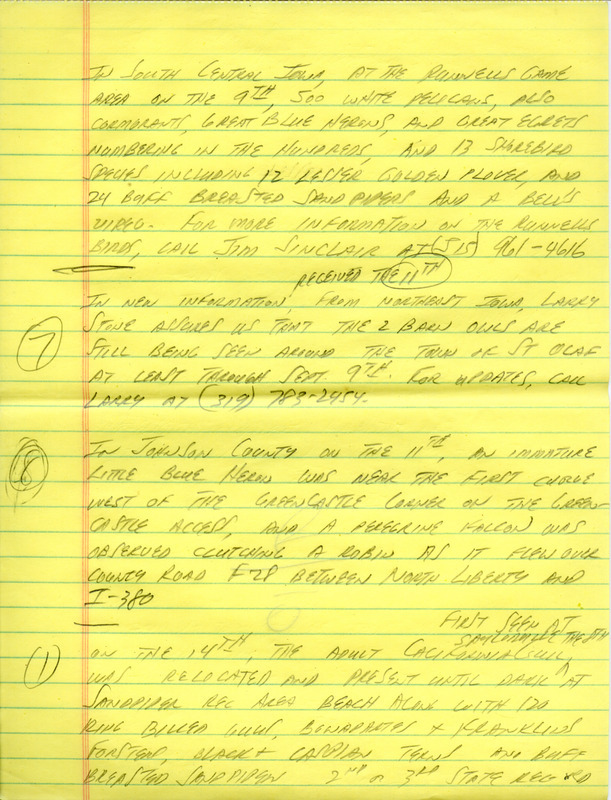 IN SOUTH CENTRAL IOWA, AT THE RUNNELLS GAME
AREA ON THE 9TH, 500 WHITE PELICANS, ALSO
CORMORANTS, GREAT BLUE HERONS, AND GREAT EGRETS
NUMBERING IN THE HUNDREDS, AND 13 SHOREBIRD
SPECIES INCLUDING 12 LESSER GOLDEN PLOVER, AND
24 BUFF BREASTED SANDPIPERS AND A BELL'S
VIREO. FOR MORE INFORMATION ON THE RUNNELLS
BIRDS, CALL JIM SINCLAIR AT (515) 961-4616
RECEIVED THE 11TH
IN NEW INFORMATION, FROM NORTHEAST IOWA, LARRY
7 STONE ASSURES US THAT THE 2 BARN OWLS ARE
STILL BEING SEEN AROUND THE TOWN OF ST OLAF
AT LEAST THROUGH SEPT. 9TH. FOR UPDATES, CALL
LARRY AT (319) 783-2454.
IN JOHNSON COUNTY ON THE 11TH, AN IMMATURE
8 LITTLE BLUE HERON WAS NEAR THE FIRST CURVE
WEST OF THE GREENCASTLE CORNER ON THE GREEN-
CASTLE ACCESS, AND A PEREGRINE FALCON WAS
OBSERVED CLUTCHING A ROBIN AS IT FLEW OVER
COUNTY ROAD F28 BETWEEN NORTH LIBERTY AND
I-380
FIRST SEEN AT
SAYLORVILLE THE 8TH
ON THE 14TH, THE ADULT CALIFORNIA GULL
1 WAS RELOCATED AND PRESENT UNTIL DARK AT
SANDPIPER REC AREA BEACH ALONG WITH
RING BILLED GULLS, BONAPARTES + FRANKLINS
FORSTERS, BLACK + CASPIAN TERNS AND BUFF
BREASTED SANDPIPER 2ND OR 3RD STATE RECORD